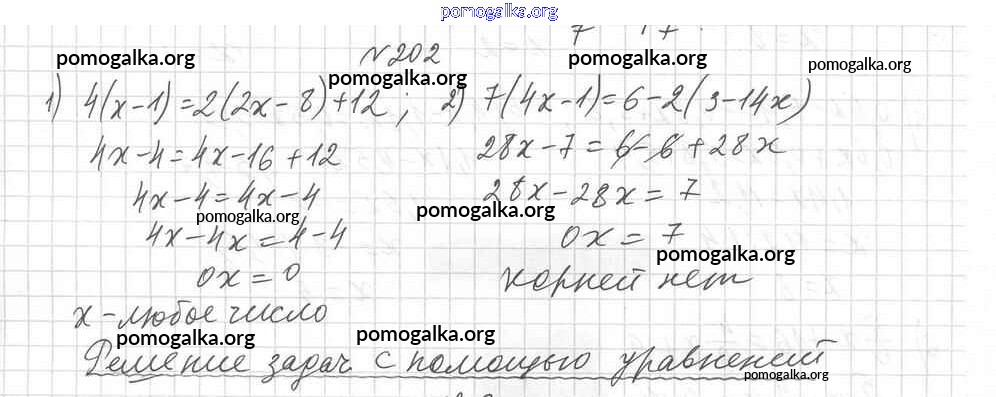 pomogalka.org
№202
pomogalka.org
pomogalka.org
pomogalka.org
pomogalka.org
1) 4(x-1)=2(2x-8)+12; 2) 7(4x-1)=6-2(3-14x)
4x-4=4x-16+12
28x-7=6-6+28x
4x-4=4x-4
28x-28x=7
pomogalka.org
pomogalka.org
4x-4x=4-4
0x=7
pomogalka.org
0x=0
корней нет
x-любое число
pomogalka.org
pomogalka.org
Решение задач с помощью уравнений
pomogalka.org